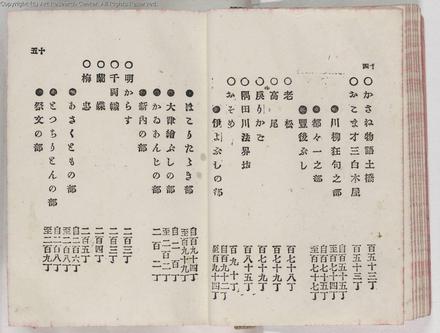 Copyright (C) Art Research Center. All Rights Reserved.
十四
〇かさね物語土橋 百五十三丁
〇おこま才三白木屋 百五十三丁
●川柳狂句之部 自百五十五丁 至百七十四丁
●都々一之部 自百七十五丁 至百七十七丁
●豊後ぶし
〇老松 百七十八丁
〇高尾 百七十九丁
〇戻りかご 百七十九丁
〇隅田川法界坊 百八十五丁
〇おそめ 百九十丁
●伊よぶしの部 自百九十二丁 至百九十四丁
十五
●ほこりたゝきの部 自百九十四丁 至百九十九丁
●大津繪ぶしの部 自二百丁 至二百二丁
●かねあんどの部 二百二丁
●新内の部
〇明からす 二百三丁
〇千両幟 二百三丁
〇蘭蝶 二百四丁
〇梅忠 二百五丁
●あさくともの部 自二百六丁 至二百八丁
●とつちりとんの部 自二百八丁
●祭文の部 至二百九丁